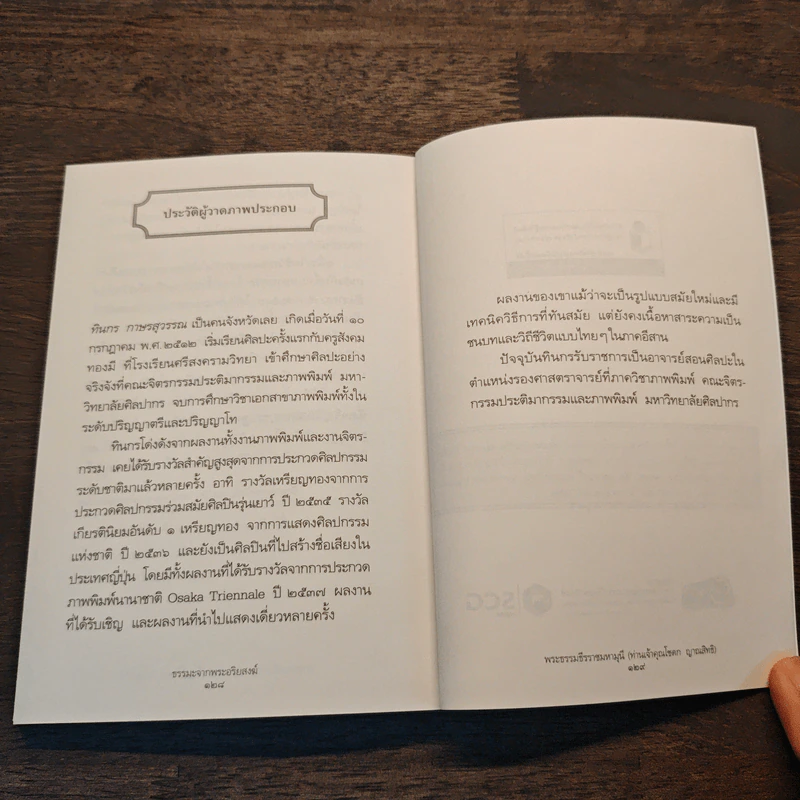 ประวัติผู้วาดภาพประกอบ
ทินกร กาษรสุวรรณ เป็นคนจังหวัดเลย เกิดเมื่อวันที่ ๑๐
กรกฎาคม พ.ศ.๒๕๑๒ เริ่มเรียนศิลปะครั้งแรกกับครูสังคม
ทองมี ที่โรงเรียนศรีสงครามวิทยา เข้าศึกษาศิลปะอย่าง
จริงจังที่คณะจิตรกรรมประติมากรรมและภาพพิมพ์ มหา-
วิทยาลัยศิลปากร จบการศึกษาวิชาเอกสาขาภาพพิมพ์ทั้งใน
ระดับปริญญาตรีและปริญญาโท
ทินกรโด่งดังจากผลงานทั้งงานภาพพิมพ์และงานจิตร-
กรรม เคยได้รับรางวัลสำคัญสูงสุดจากการประกวดศิลปกรรม
ระดับชาติมาแล้วหลายครั้ง อาทิ รางวัลเหรียญทองจากการ
ประกวดศิลปกรรมร่วมสมัยศิลปินรุ่นเยาว์ ปี ๒๕๓๕ รางวัล
เกียรตินิยมอันดับ ๑ เหรียญทอง จากการแสดงศิลปกรรม
แห่งชาติ ปี ๒๕๓๖ และยังเป็นศิลปินที่ไปสร้างชื่อเสียงใน
ประเทศญี่ปุ่น โดยมีทั้งผลงานที่ได้รับรางวัลจากการประกวด
ภาพพิมพ์นานาชาติ Osaka Triennale ปี ๒๕๓๗ ผลงาน
ที่ได้รับเชิญ และผลงานที่นำไปแสดงเดี่ยวหลายครั้ง
ธรรมะจากพระอริยสงฆ์
๑๒๘
ผลงานของเขาแม้ว่าจะเป็นรูปแบบสมัยใหม่และมี
เทคนิควิธีการที่ทันสมัย แต่ยังคงเนื้อหาสาระความเป็น
ชนบทและวิถีชีวิตแบบไทยๆ ในภาคอีสาน
ปัจจุบันทินกรรับราชการเป็นอาจารย์สอนศิลปะใน
ตำแหน่งรองศาสตราจารย์ที่ภาควิชาภาพพิมพ์ คณะจิตร-
กรรมประติมากรรมและภาพพิมพ์ มหาวิทยาลัยศิลปากร
พระธรรมธีรราชมหามุนี (ท่านเจ้าคุณโชดก ญาณสิทธิ)
๑๒๙